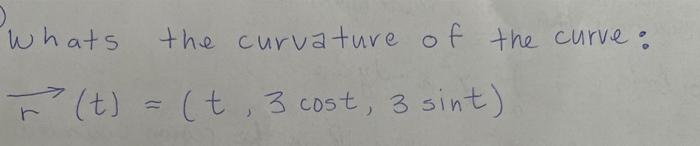 whats the curvature of the curve:
r→(t) = (t, 3 cost, 3 sint)